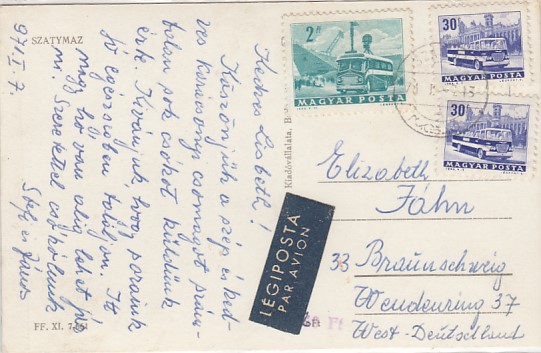 SZATYMAZ
971. I. 7.
Kedves Lisbeth!
Köszönjük a szép és ked-
ves karácsonyi csomagot, szám-
talan sok csókot küldünk
érte. Kívánjuk, hogy soraink
jó egészségben találjon. Itt
nagy hó van alig lehet já-
ni. Szeretettel csókolunk
és János
FF. XI. 7/61
Kiadóvállalata, B
2 Ft
MAGYAR POSTA
30 f
MAGYAR POSTA
30 f
MAGYAR POSTA
LÉGIPOSTA
PAR AVION
Elizabeth
Fáhn
33 Braunschweig
Wendenring 37
West-Deutschland